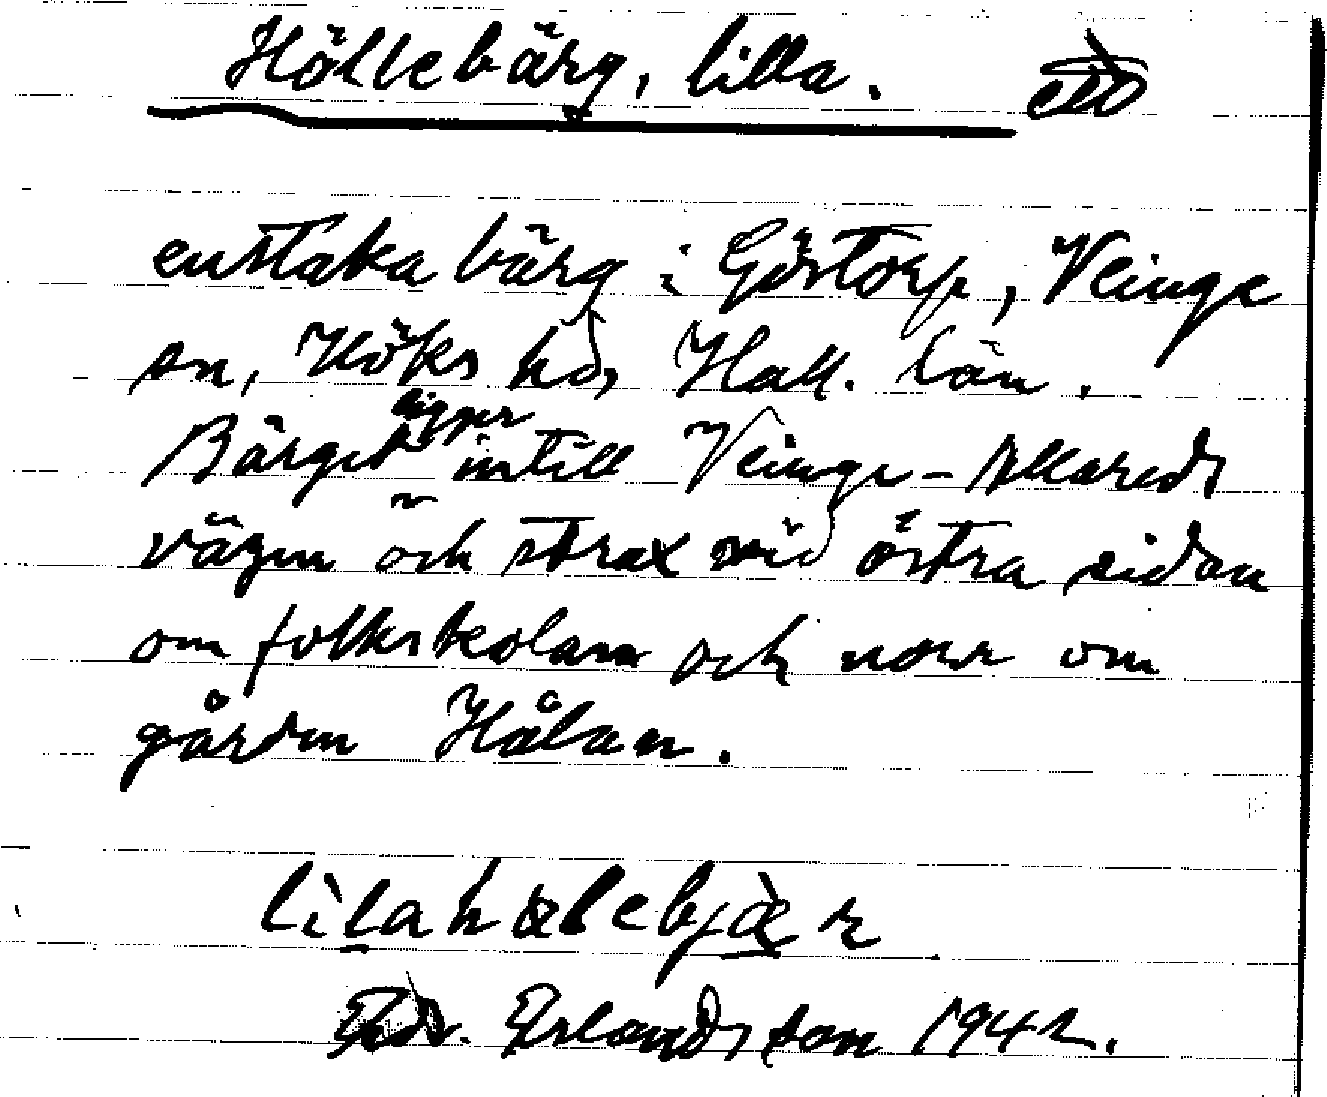 Höllebärg, lilla.
enstaka bärg i Göstorp, Veinge
sn, Höks hd, Hall. län.
Bärget ligger intill Veinge-Allareds
vägen och strax vid östra sidan
om folkskolan och norr om
gården Hålan.
lilahølebjær
Edv. Erlandsson 1942.